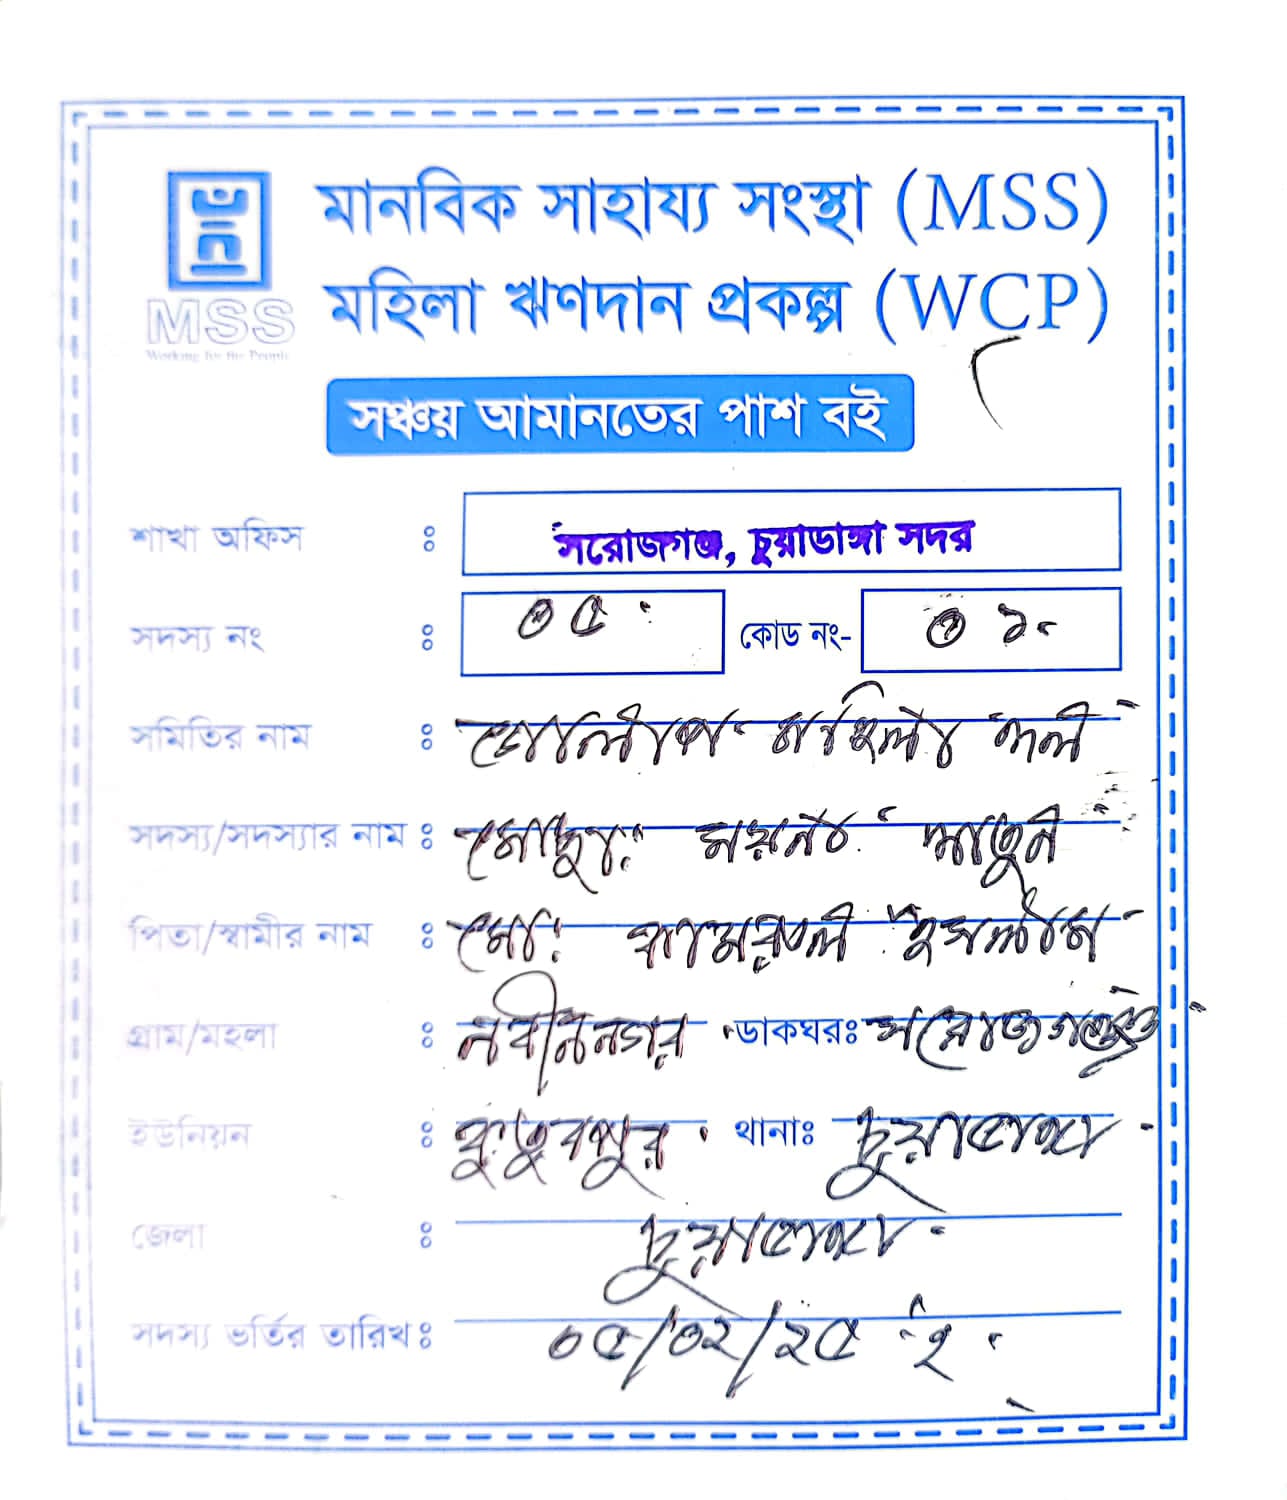 মানবিক সাহায্য সংস্থা (MSS)
মহিলা ঋণদান প্রকল্প (WCP)
MSS
Working for the People
সঞ্চয় আমানতের পাশ বই
শাখা অফিস : সরোজগঞ্জ, চুয়াডাঙ্গা সদর
সদস্য নং : ০৫ কোড নং- ০১
সমিতির নাম : গোলাপ মহিলা দল
সদস্য/সদস্যার নাম : মোছাঃ ময়না খাতুন
পিতা/স্বামীর নাম : মোঃ কামরুল ইসলাম
গ্রাম/মহলা : নবীননগর ডাকঘরঃ সরোজগঞ্জ
ইউনিয়ন : কুতুবপুর থানাঃ চুয়াডাঙ্গা
জেলা : চুয়াডাঙ্গা
সদস্য ভর্তির তারিখঃ ০৫/০২/২৫ ইং